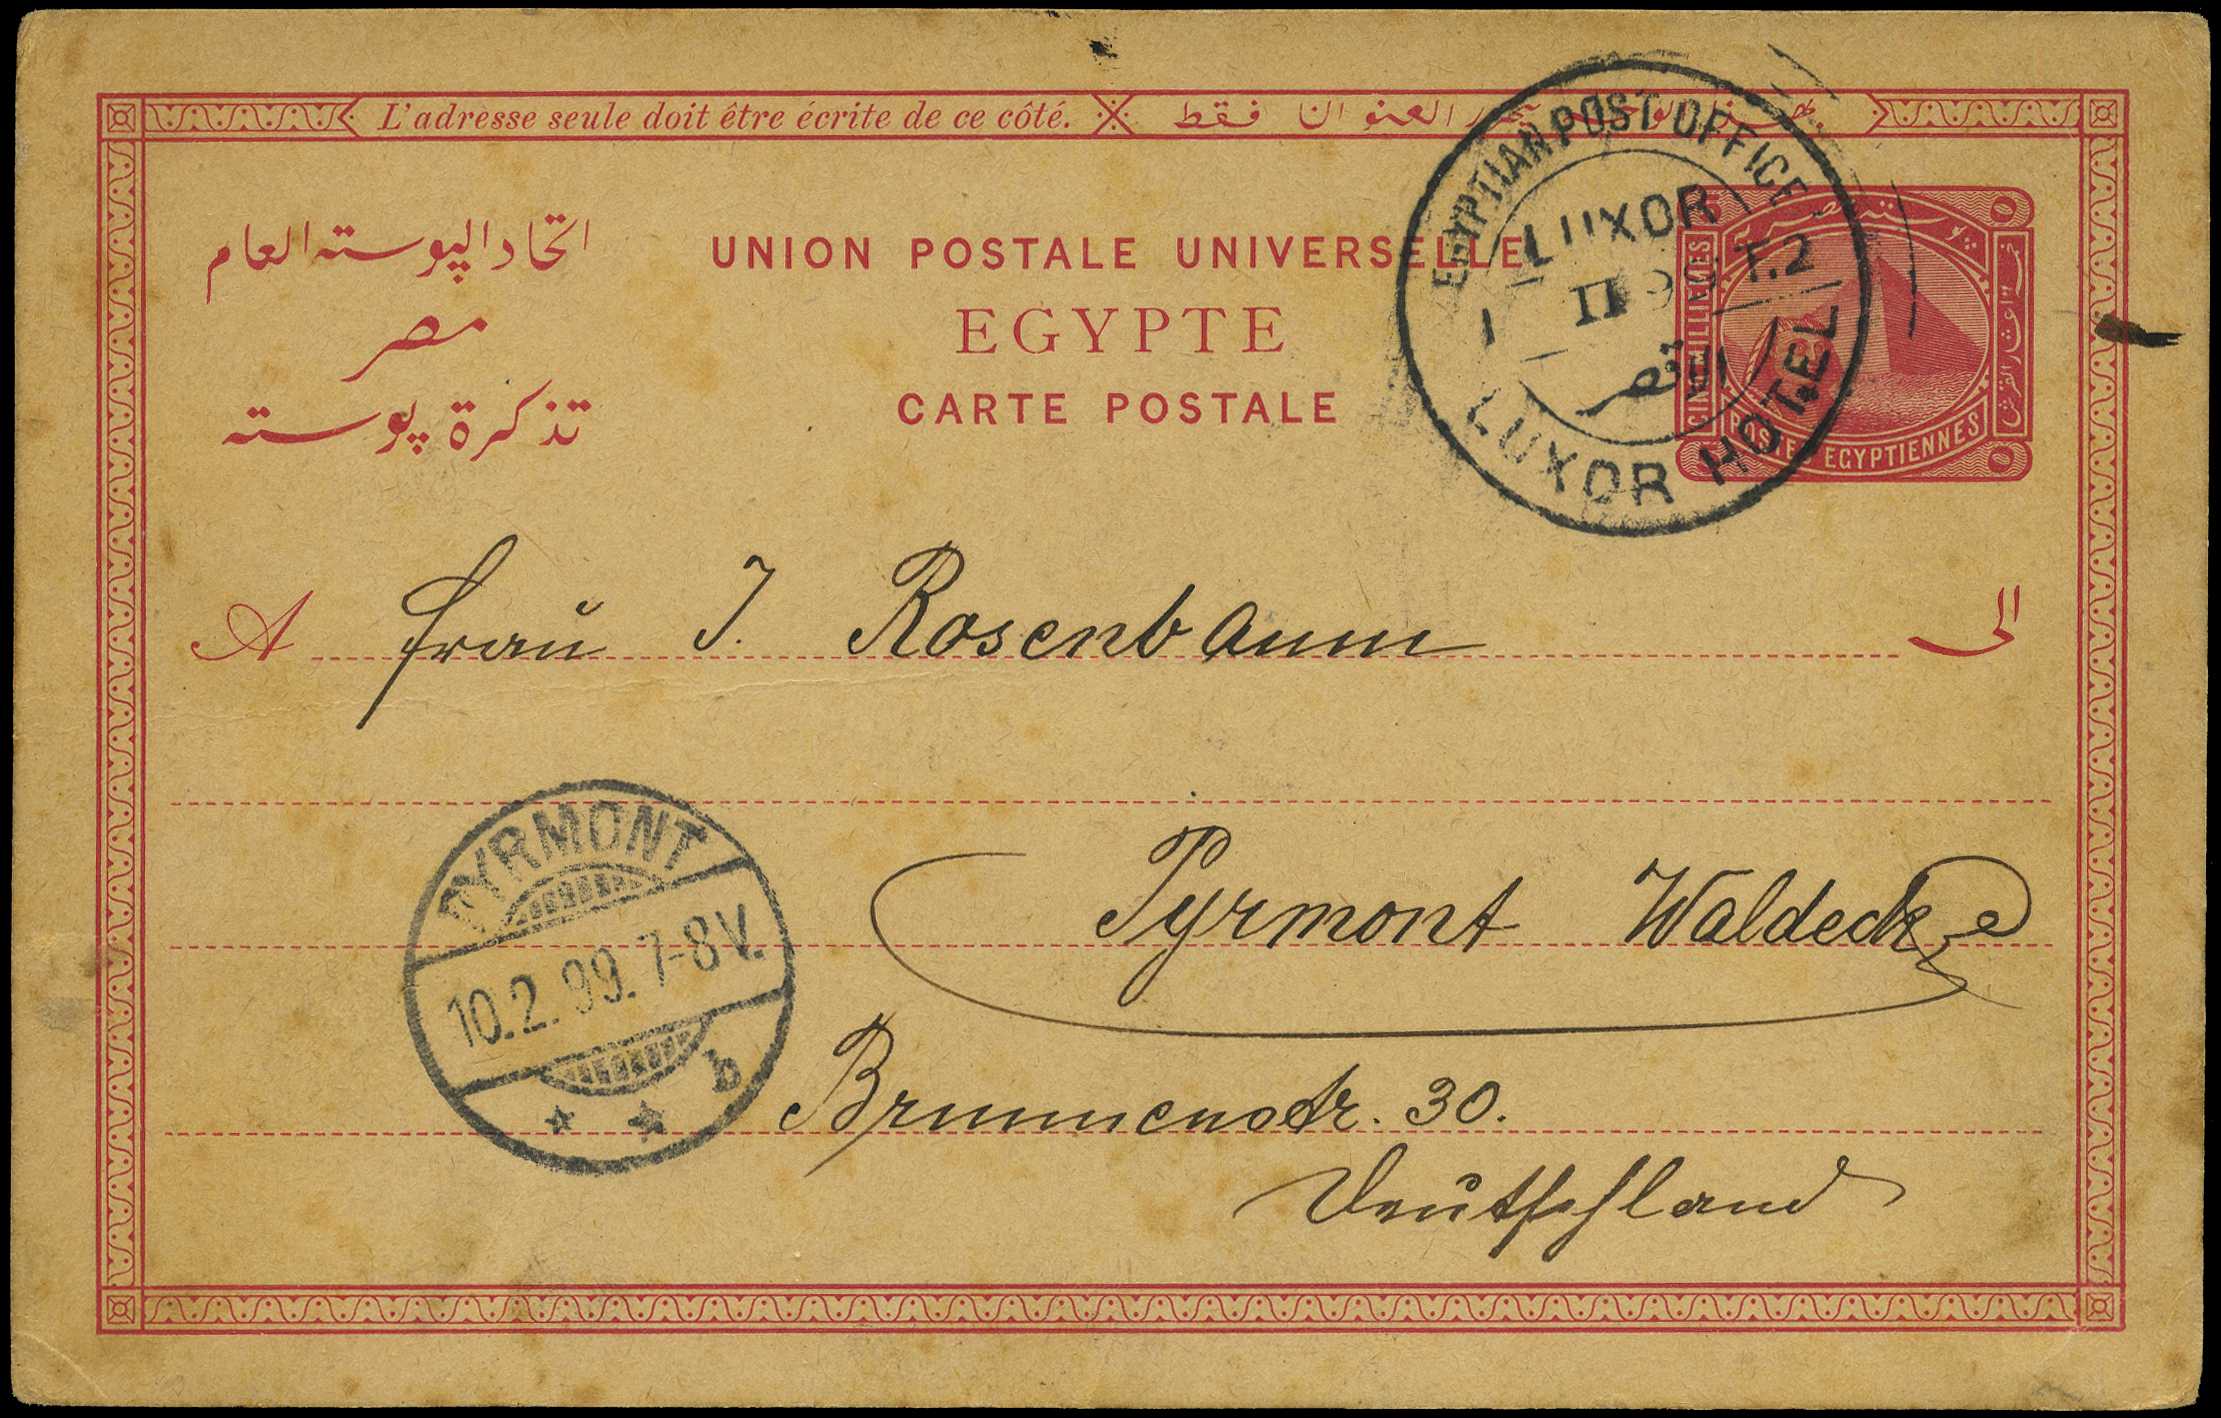 L'adresse seule doit être écrite de ce côté.
العنوان فقط
اتحاد البوسته العام
مصر
تذكرة بوسته
UNION POSTALE UNIVERSELLE
EGYPTE
CARTE POSTALE
EGYPTIAN POST OFFICE
LUXOR
II 99 T.2
الاقصر
LUXOR HOTEL
CINQ MILLIEMES
POSTES EGYPTIENNES
A Frau J. Rosenbaum الى
PYRMONT
10.2.99. 7-8 V.
* * b
Pyrmont Waldeck
Brunnenstr. 30.
Deutschland